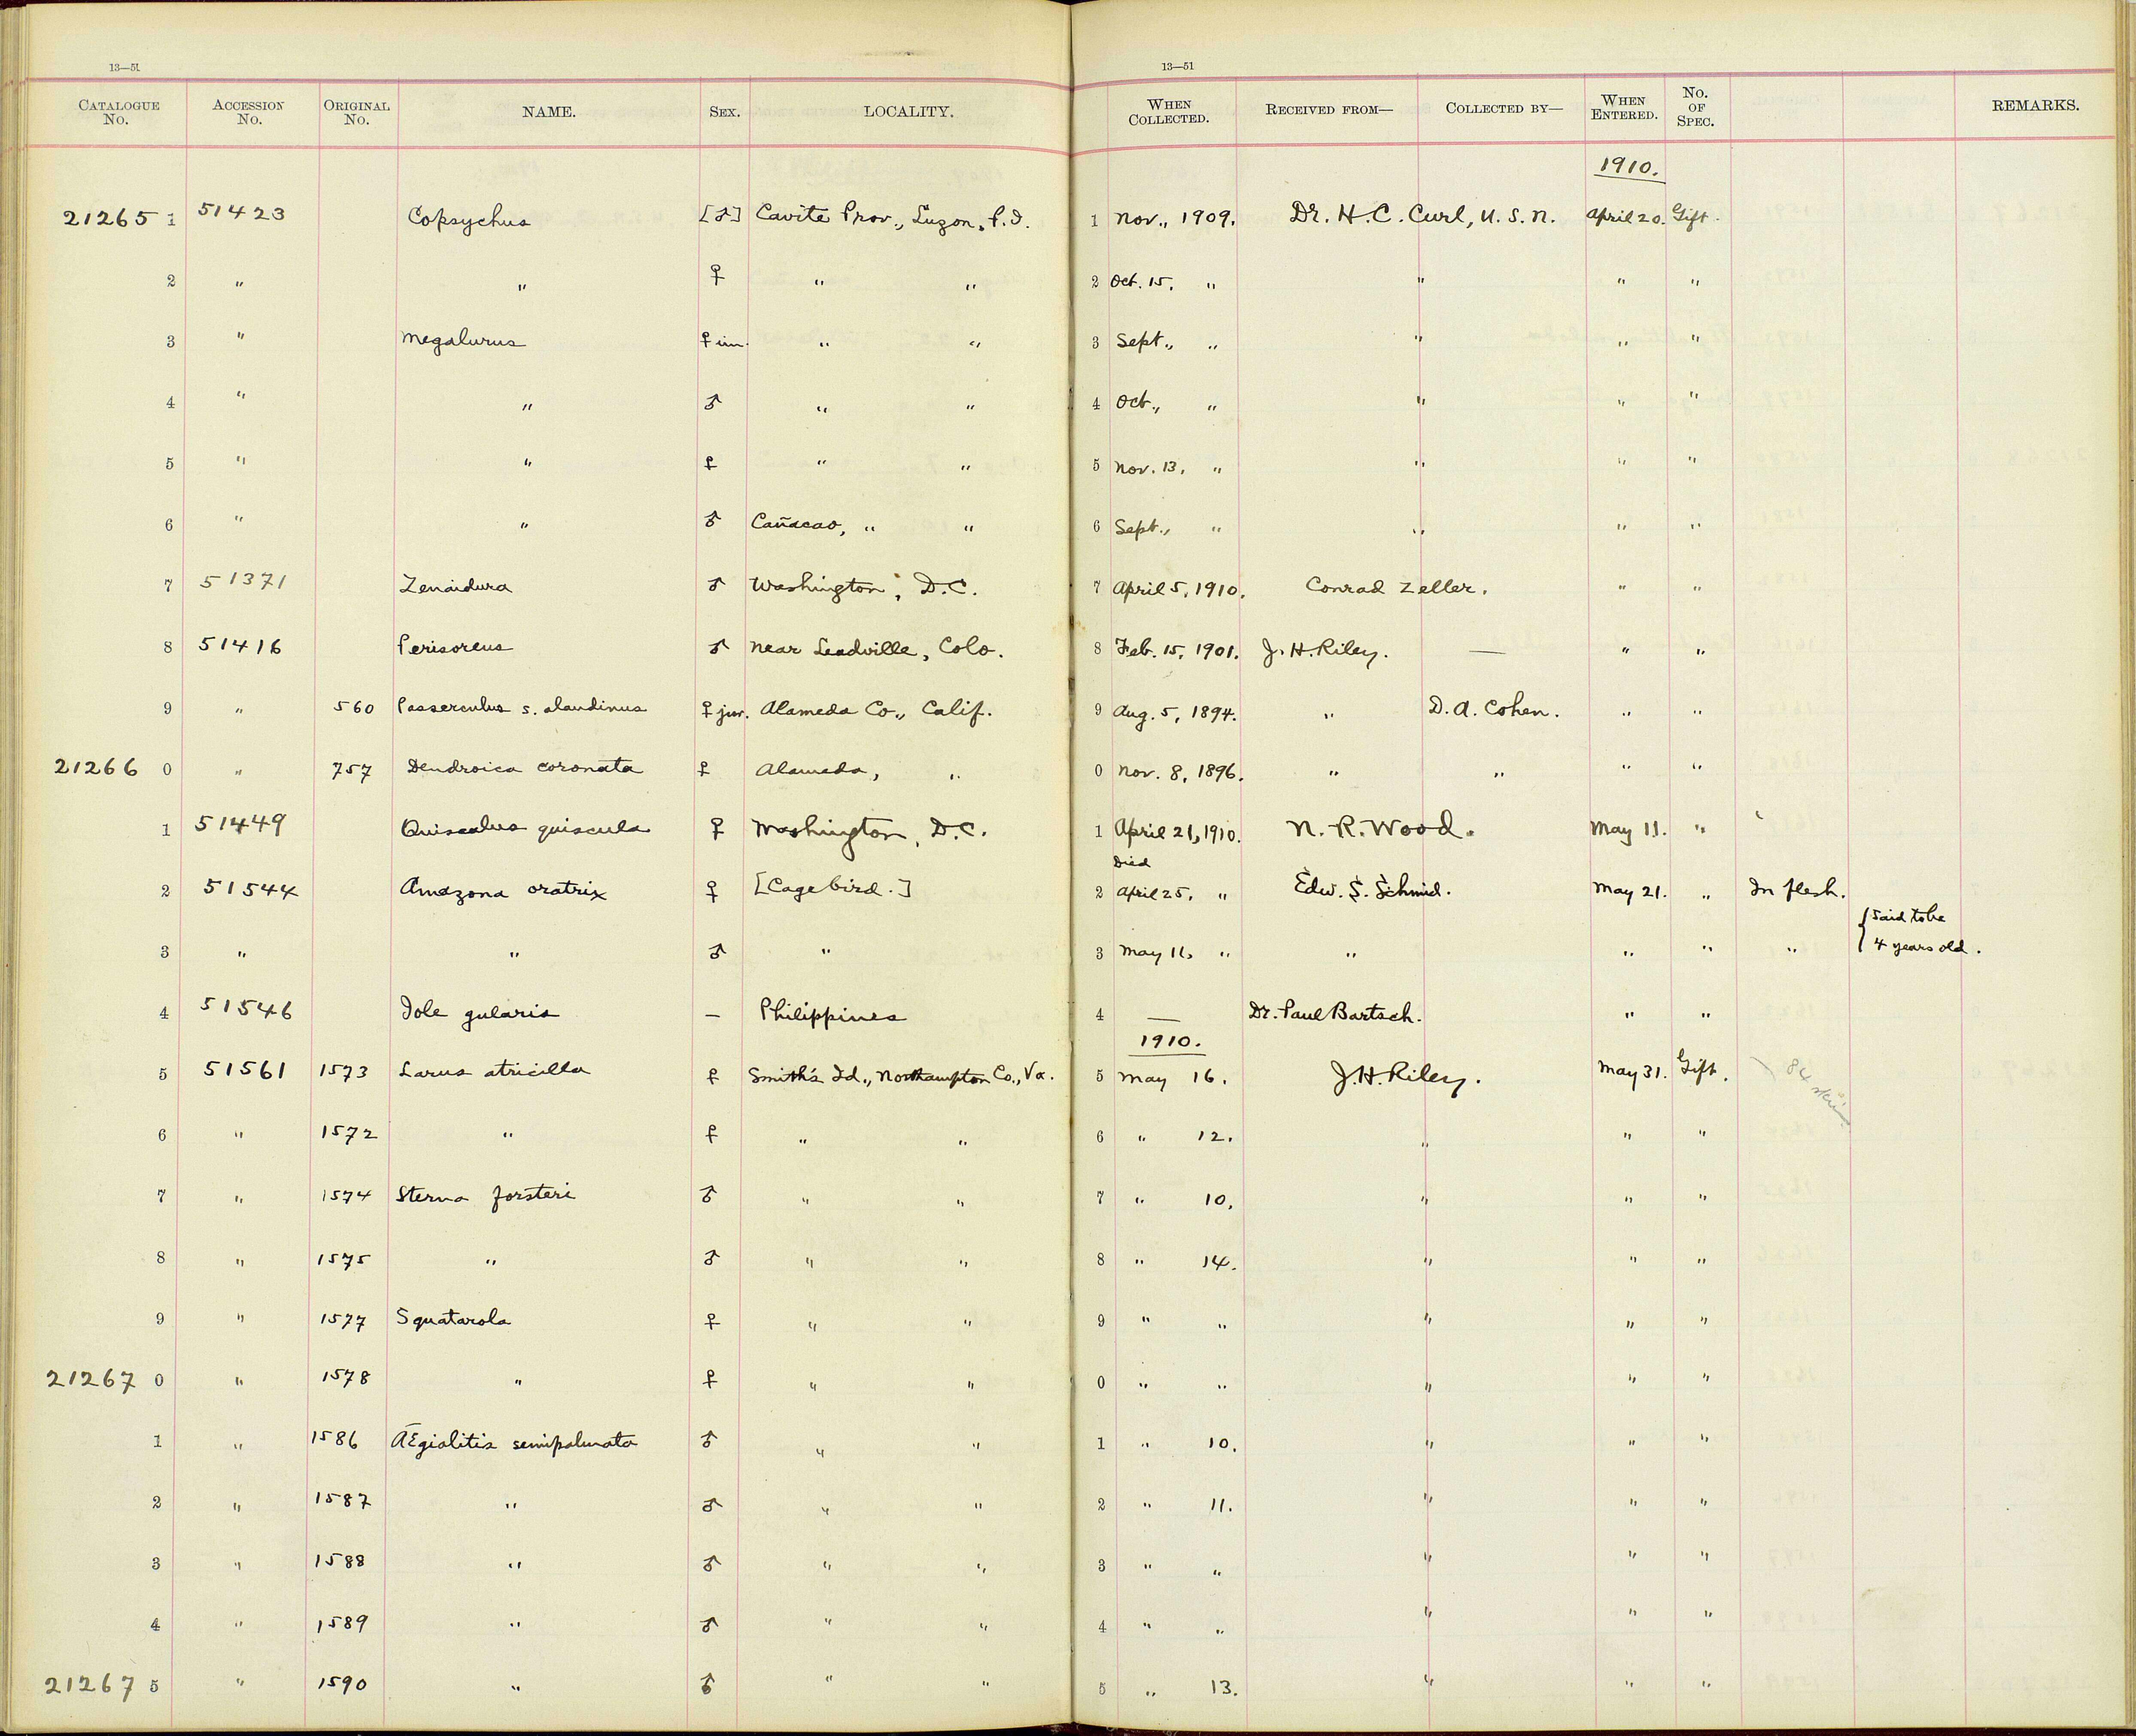 13—51 13—51
CATALOGUE No. ACCESSION No. ORIGINAL No. NAME. SEX. LOCALITY. WHEN COLLECTED. RECEIVED FROM— COLLECTED BY— WHEN ENTERED. No. OF SPEC. REMARKS.
1910.
21265 1 51423 Copsychus [♂] Cavite Prov., Luzon, P.I. 1 Nov., 1909. Dr. H. C. Curl, U. S. N. April 20. Gift.
2 " " ♀ " " 2 Oct. 15, " " " "
3 " Megalurus ♀ im. " " 3 Sept., " " " "
4 " " ♂ " " 4 Oct., " " " "
5 " " ♀ " " 5 Nov. 13, " " " "
6 " " ♂ Cañacao, " " 6 Sept., " " " "
7 51371 Zenaidura ♂ Washington, D.C. 7 April 5, 1910. Conrad Zeller. " "
8 51416 Perisoreus ♂ near Leadville, Colo. 8 Feb. 15, 1901. J. H. Riley. — " "
9 " 560 Passerculus s. alaudinus ♀ juv. Alameda Co., Calif. 9 Aug. 5, 1894. " D. A. Cohen. " "
21266 0 " 757 Dendroica coronata ♀ Alameda, " 0 Nov. 8, 1896. " " " "
1 51449 Quiscalus quiscula ♀ Washington, D.C. 1 April 21, 1910. N. R. Wood. May 11. "
Died
2 51544 Amazona oratrix ♀ [Cage bird.] 2 April 25, " Edw. S. Schmid. May 21. " In flesh.
{ Said to be
3 " " ♂ " 3 May 11, " " " " " 4 years old.
4 51546 Iole gularis — Philippines 4 — Dr. Paul Bartsch. " "
1910.
5 51561 1573 Larus atricilla ♀ Smith's Id., Northampton Co., Va. 5 May 16. J. H. Riley. May 31. Gift. 84 skins
6 " 1572 " ♀ " " 6 " 12. " " "
7 " 1574 Sterna forsteri ♂ " " 7 " 10. " " "
8 " 1575 " ♂ " " 8 " 14. " " "
9 " 1577 Squatarola ♀ " " 9 " " " " "
21267 0 " 1578 " ♀ " " 0 " " " " "
1 " 1586 Ægialitis semipalmata ♂ " " 1 " 10. " " "
2 " 1587 " ♂ " " 2 " 11. " " "
3 " 1588 " ♂ " " 3 " " " " "
4 " 1589 " ♂ " " 4 " " " " "
21267 5 " 1590 " ♂ " " 5 " 13. " " "